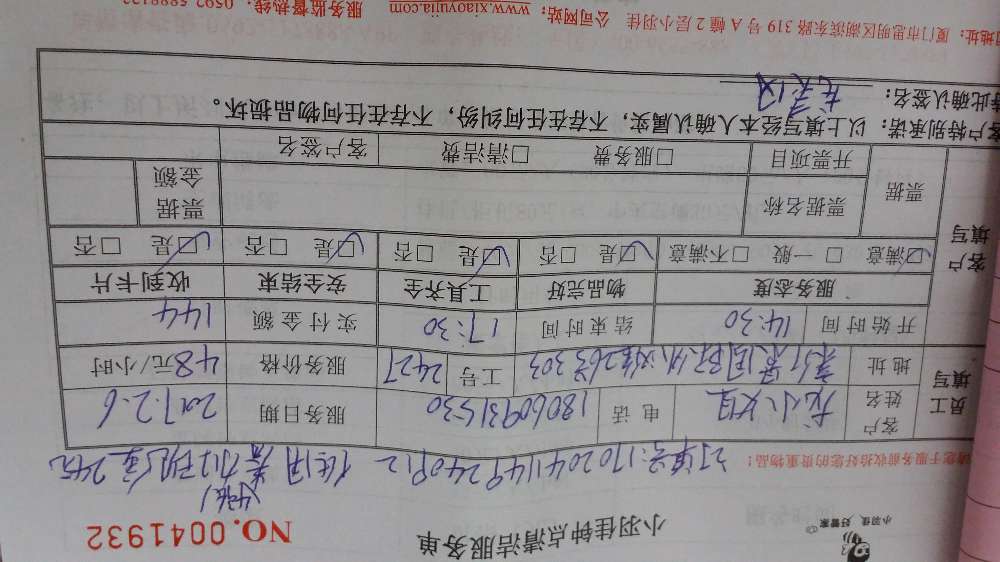 小羽佳 好管家
小羽佳钟点清洁服务单
NO.0041932
请您于服务前收拾好您的贵重物品:
订单号:170204114924 使用 现金24元
员工填写
客户姓名 龙小姐 电话 18060931530 服务日期 2017.2.6
地址 263 303 工号 2427 服务价格 48元/小时
开始时间 14:30 结束时间 17:30 实付金额 144
客户填写
服务态度 物品完好 工具齐全 安全结束 收到卡片
☑满意 □一般 □不满意 ☑是 □否 ☑是 □否 ☑是 □否 ☑是 □否
票据 票据名称 票据金额
开票项目 □服务费 □清洁费 客户签名
客户特别承诺:以上填写经本人确认属实,不存在任何纠纷,不存在任何物品损坏。
特此确认签名:
地址:厦门市思明区湖滨东路319号A幢2层小羽佳 公司网站:www.xiaoyujia.com 服务监督热线:0592-5888122